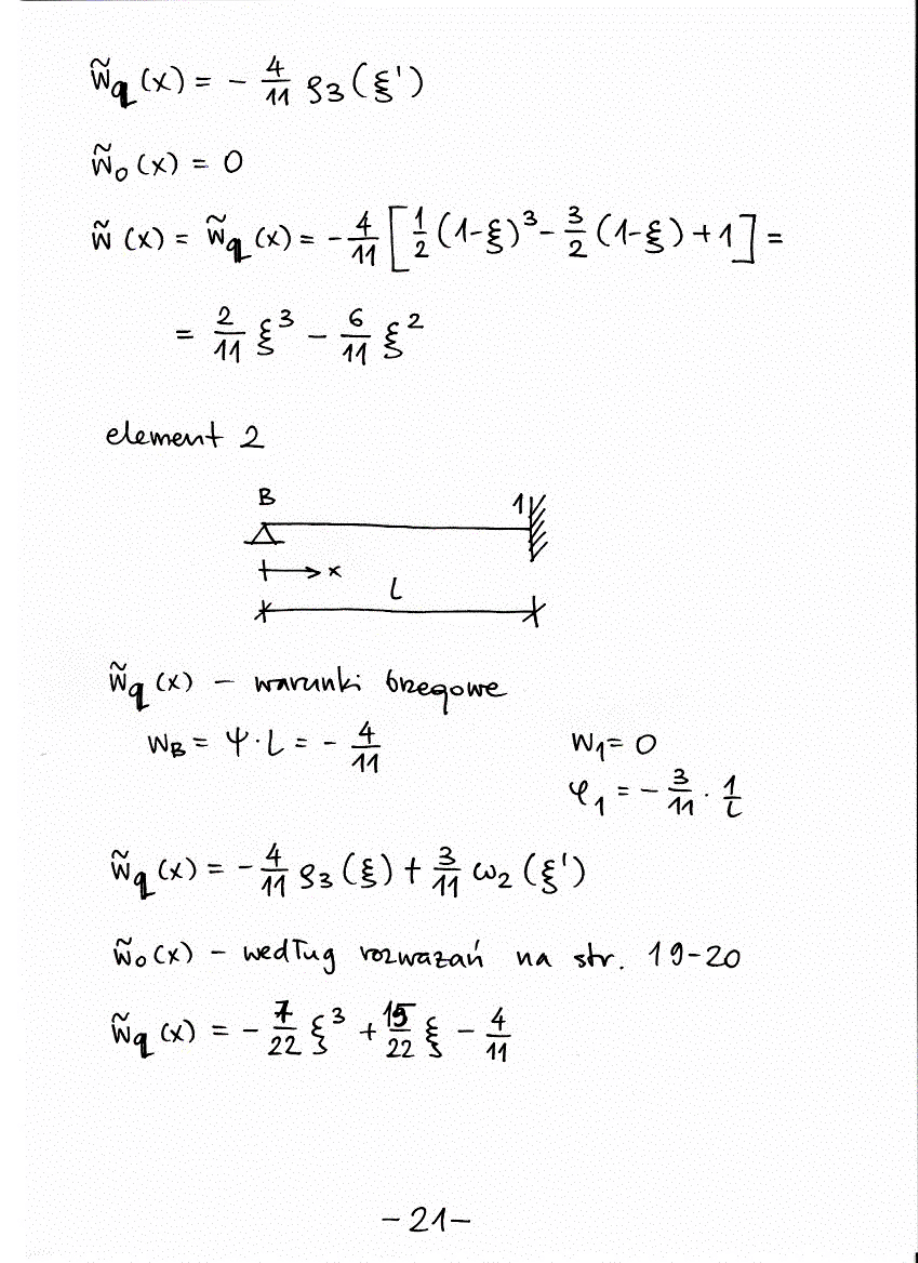 w̃q (x) = - 4/11 ρ3(ξ')
w̃o(x) = 0
w̃ (x) = w̃q (x) = - 4/11 [ 1/2 (1-ξ)³ - 3/2 (1-ξ) + 1 ] =
= 2/11 ξ³ - 6/11 ξ²
element 2
B 1
x
L
w̃q (x) - warunki brzegowe
wB = Ψ·L = - 4/11 w1 = 0
φ1 = - 3/11 · 1/L
w̃q (x) = - 4/11 ρ3(ξ) + 3/11 ω2(ξ')
w̃o(x) - według rozważań na str. 19-20
w̃q (x) = - 7/22 ξ³ + 15/22 ξ - 4/11
-21-